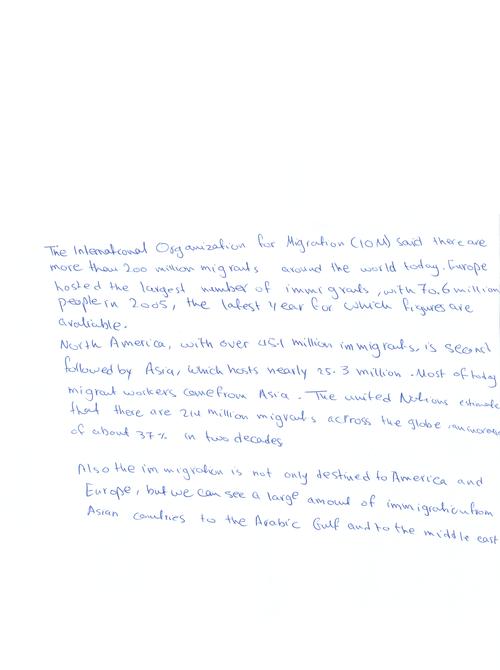 The International Organization for Migration (IOM) said there are
more than 200 million migrants around the world today. Europe
hosted the largest number of immigrants, with 70.6 million
people in 2005, the latest year for which figures are
avaliable.
North America, with over 45.1 million immigrants, is second
followed by Asia, which hosts nearly 25.3 million. Most of today
migrant workers come from Asia. The united Nations estimate
that there are 214 million migrants across the globe, an increase
of about 37% in two decades
Also the immigration is not only destined to America and
Europe, but we can see a large amount of immigration from
Asian countries to the Arabic Gulf and to the middle east